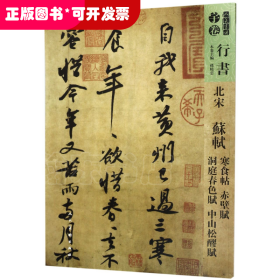 正版现货 品质保证
行書
北宋
蘇軾
寒食帖 赤壁賦
洞庭春色賦 中山松醪賦
自我來黃州已過三寒
食年々欲惜春々去不
容惜今年又苦雨兩月秋